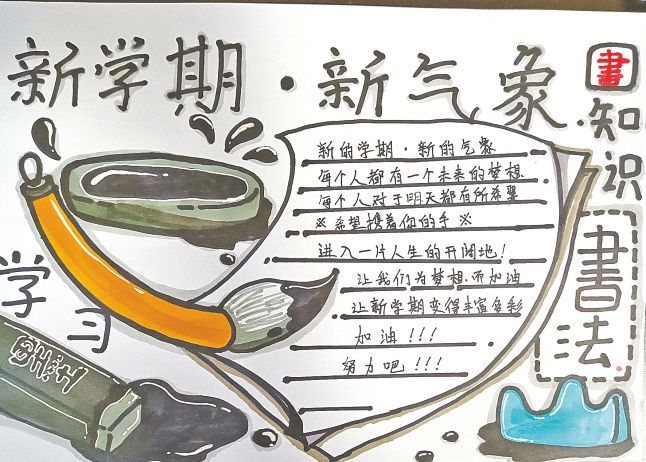 新学期·新气象
書
知识
書法
新的学期·新的气象
每个人都有一个未来的梦想
每个人对于明天都有所希望
※希望携着你的手※
进入一片人生的开阔地!
让我们为梦想而加油
让新学期变得丰富多彩
加油!!!
努力吧!!!
学习